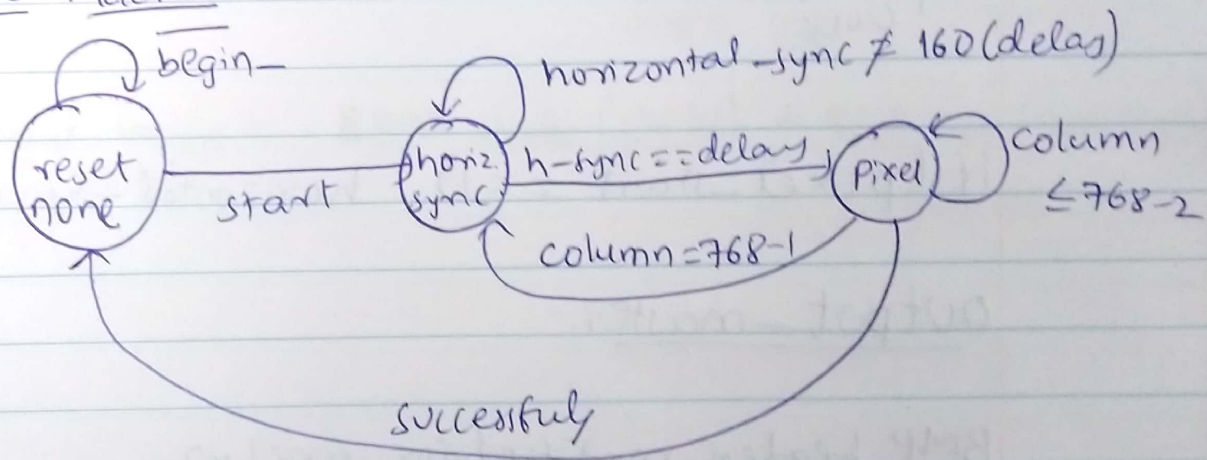 begin
horizontal-sync ≠ 160 (delay)
reset
none
start
horiz
sync
h-sync==delay
pixel
column
≤768-2
column=768-1
successfuly